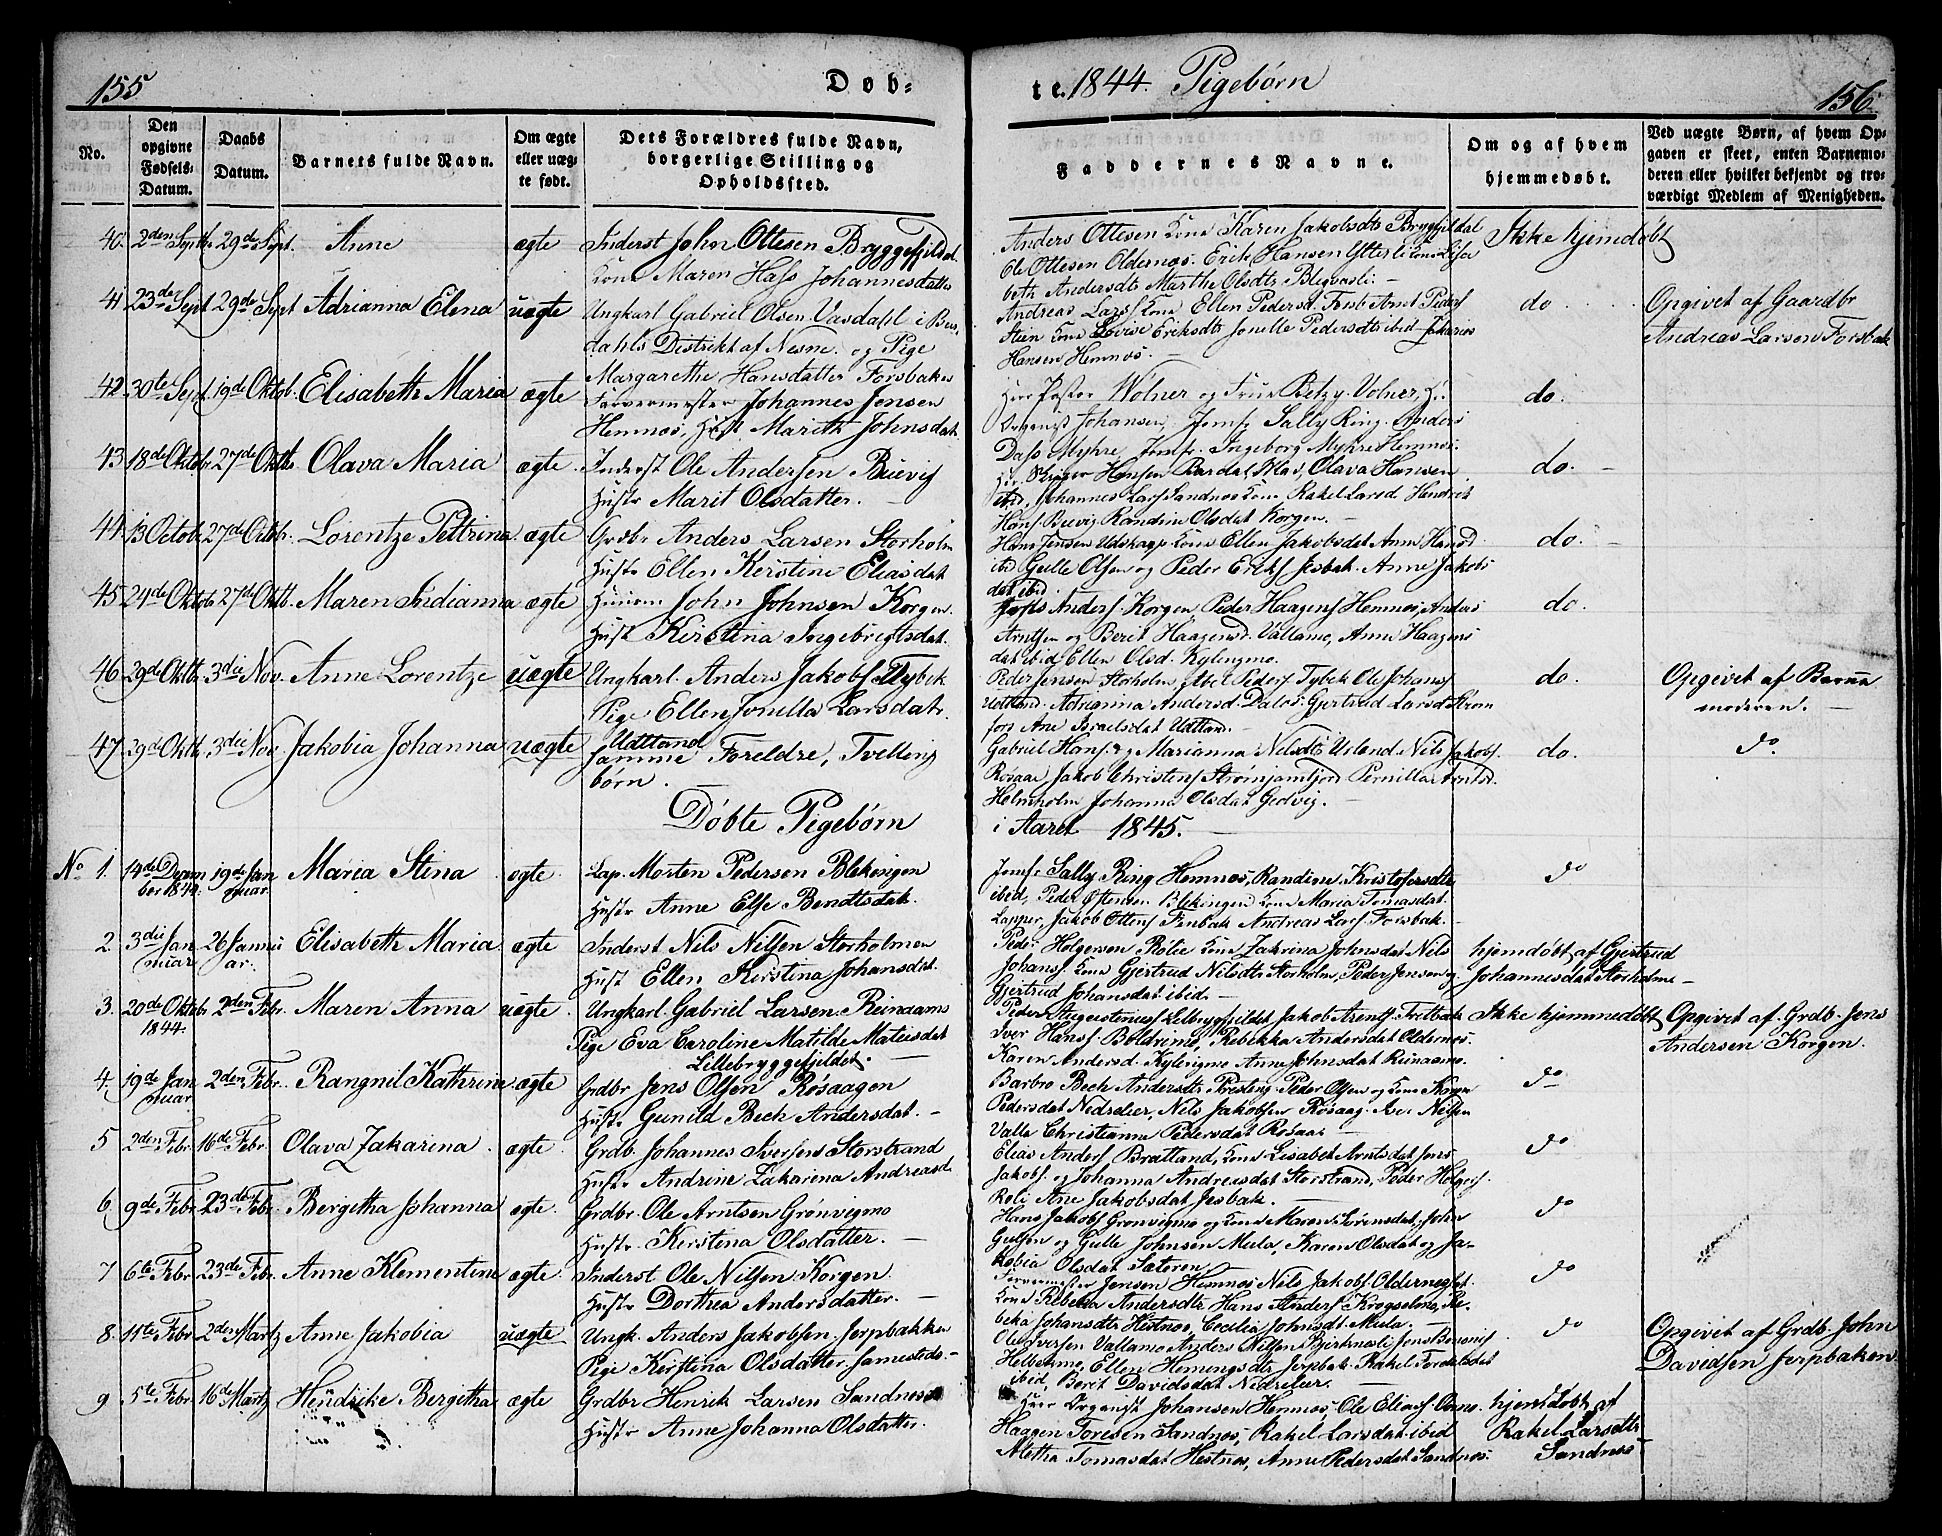 155
Døb-
te. 1844. Pigebørn
156.
No.
Den opgivne Fødsels-Datum.
Daabs Datum.
Barnets fulde Navn.
Om ægte eller uæg-te født.
Dets Forældres fulde Navn, borgerlige Stilling og Opholdssted.
Faddernes Navne.
Om og af hvem hjemmedøbt.
Ved uægte Børn, af hvem Op-gaven er skeet, enten Barnemo-deren eller hvilket bekjendt og tro-værdigt Medlem af Menigheden.
40. 2den Septbr 29de Sept. Anne ægte Inderst John Ottesen Bryggefjeldet
Kone Maren Hass Johannesdatter
Anders Ottesen Kone Karen Jakobsdtr Bryggfjeldal
Ole Ottesen Oldernæs. Erik Hansen Ytterli Kone Lisa
beth Andersdtr Marthe Olsdtr Blegvasli. –
Ikke hjemdøbt
41. 23de Sept 29de Sept Adrianna Elena uægte Ungkarl Gabriel Olsen Vasdahl i Bus
dahls Distrikt af Nesne. og Pige
Margarethe Hansdatter Forsbakes
Andreas Larss Kone Ellen Pedersd. Forsb. Amt Peders
Stien Kone Lovise Eriksdtr Jonille Pedersdtr ibid Johannes
Hansen Hemnæs. –
do
Opgivet af Gaardbr
Andreas Larsen Forsbak
42. 30te Sept. 19de Oktob. Elisabeth Maria ægte Farvermester Johannes Jensen
Hemnæs, Hust. Marith Johnsdat.
Herr Pastor Wolner og Frue Betzy Volner, Hr.
Organist Johansen, Jomfr Sally Ring. Anders
Dass Myhre, Jomfr. Ingeborg Myhre Hemnæs.
do.
43. 18de Oktobr 27de Oktbr Olava Maria ægte Inderst Ole Andersen Buevig
Hustr Marit Olsdatter. –
Hansen Bardal, Olava Hansen
ibid, Johannes Larss Sandnæs Kone Rakel Larsd Hendrik
Hans Buvig Randine Olsdat Korgen. –
do. –
44. 13 Octobr 27de Octbr. Lorentze Pettrina ægte Grdbr Anders Larsen Storholm
Hustr Ellen Kerstine Eliasdat
Hans Jensen Udskarp Kone Ellen Jakobsdat Anne Hansd
ibid Gulle Olsen og Peder Eriks Jesbak. Anne Jakobs
dat ibid.
do. –
45. 24de Oktobr 27de Oktb. Maren Indianna ægte Huusm John Johnsen Korgen.
Hust Kirstina Ingebrigtsdat.
Anders. Korgen Peder Haagens Hemnæs, Anders
Arntsen og Berit Haagensd. Vallamo, Anne Haagens
dat ibid Ellen Olsd. Kylingmo.
do.
46. 29de Oktb. 3die Nov. Anne Lorentze uægte Ungkarl. Anders Jakobs Tybek
Pige Ellen Jonilla Larsdatr.
Udtland
Peder Jensen Storholm, Peders Tybek Ole Johans
Udtland. Adrianna Andersd. Dalos. Gjertrud Larsd Strom
fors Ane Israelsdat Udtland. –
do.
Opgivet af Barne
moderen. –
47. 29de Oktb. 3die Nov. Jakobia Johanna uægte samme Foreldre, Tvilling
børn.
Gabriel Hans. og Marianna Nelsdtr Urland. Nils Jakobs.
Røsaae Jakob Christens Strømjamfjord Pernilla Arntsd.
Helmholm Johanna Olsdat Gedvig. –
do.
do.
Døbte Pigebørn
i Aaret 1845. –
No 1. 14de Decem
ber 1844. 19de Jan
nuar. Maria Stina ægte. Lap. Morten Pedersen Blekingen
Hustr Anne Else Bendtsdat.
Jomfr Sally Ring Hemnæs, Randine Kristofersdtr
ibid, Peder Østensen Blekingen Kone Maria Tomasdat.
Lapper, Jakob Ottens Finbak Andreas Lars Forsbak. –
do
2. 3die Jan
nuar 26 Janu
ar. Elisabeth Maria ægte Inderst Nils Nilsen Storholmen
Hust Ellen Kirstina Johansdat.
Peder Holgersen Rølie Kone Zakrina Johnsdat Nils
Johans Kone Gjertrud Nilsdtr Storholm, Peder Jensen og
Gjertrud Johansdat ibid. –
hjemdøbt af Gjertrud
Johannesdat Storholm –
3. 20de Oktobr
1844. 2den Febr. Maren Anna uægte Ungkarl Gabriel Larsen Reinaamo
Pige Eva Caroline Matilde Mateisdat
Lillebryggefjeldet. –
Peder Augustinius Lilbrygfjeldet Jakob Arents. Tretbak
Iver Hans. Boldremo, Rebekka Andersdat Oldernæs.
Karen Andersd. Kylingmo Anne Johnsdat Reinaamo.
Ikke hjemmedøbt
Opgivet af Grdb. Jens
Andersen Korgen.
4. 19de Jan
nuar. 2den Febr. Rangnil Kathrina ægte Grdbr Jens Olsen Røsaagen
Hustr. Gunild Bech Andersdat. –
Barbro Bech Andersdtr Presteng. Peder Olsen og Kone Karen
Pedersdat Nedrelier, Nils Jakobsen Røsaag. Iver Nilsen
Valla Christianna Pedersdat Røsaae
do
5 2den Febr 16de Febr. Olava Zakarina. ægte. Grdb. Johannes Iversens Storstrand
Hustr Andrine Zakarina Andreasd.
Elias Anders Bratland, Kone Lisabet Arntsdat Jens
Jakobs. og Johanna Andreasdat Storstrand, Peder Holgers.
Røli Ane Jakobsdat Jesbak. –
do
6. 9de Febr 23de Febr. Bergitha Johanna ægte. Grdbr Ole Arntsen Grønvigmo
Hustr. Kirstina Olsdatter. –
Hans Jakobs Grønvigmo og Kone Maren Sørensdat, John
Gulsen og Gulle Johnsen Mula, Karen Olsdat og Ja-
kobia Olsdat Sæteren. –
do
7 6te Febr 23de Febr. Anne Klementine ægte. Inderst Ole Nilsen Korgen.
Hustr Dorthea Andersdatter. –
Farvermester Jensen Hemnæs Nils Jakobs. Oldernæs.
Kone Rebekka Andersdtr Hans Anders Krogselmo, Re-
beka Johansdtr Hestnæs, Cecilia Johnsdt Mula. –
do
8. 11te Febr. 2den Martz Anne Jakobia uægte Ungk. Anders Jakobsen. Jerpbakken
Pige Kirstina Olsdatter. Samesteds. –
Ole Iversen Vallamo Anders Nilsen Bjerknesli Jens Benonis
Helbomo, Ellen Hemingsdtr Jerpbak. Rakel Tordalsdat
ibid, Berit Davidsdat Nedrelier. –
do
Opgivet af Grdb. John
Davidsen Jerpbaken
9 5te Febr. 16de Martz Hendrike Bergitha ægte Grdbr Henrik Larsen Sandnæs
Hustr Anne Johanna Olsdatter.
Herr Organist Johansen Hemnæs, Ole Elias.
Haagen Toresen Sandnæs, Rakel Larsdat ibid
Aletha Tomasdat Hestnæs, Anne Pedersdat Sandnæs.
hjemdøbt af
Rakel Larsdtr
Sandnæs